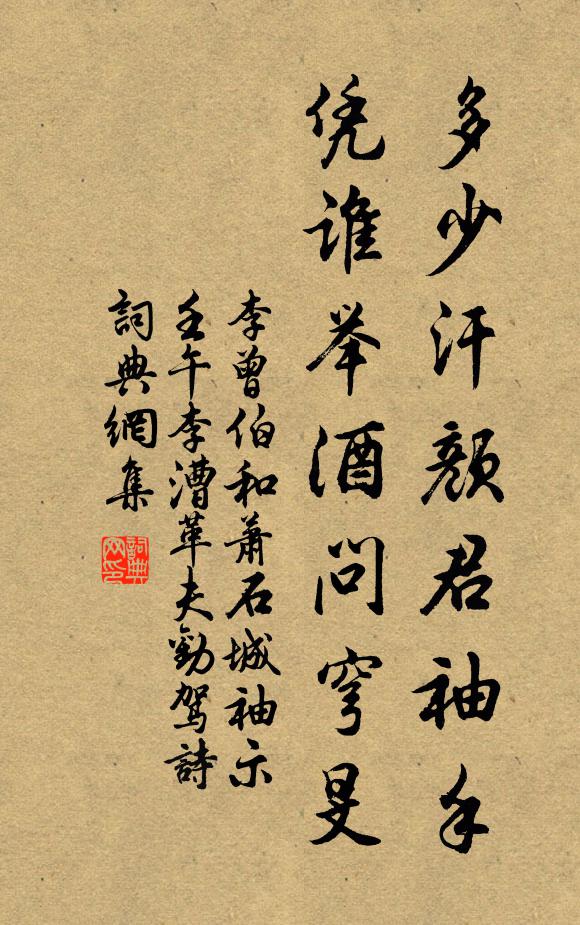 多少汗颜君袖手
凭谁举酒问穹旻
李曾伯和萧石城袖示
壬午李漕革夫劝驾诗
詞典網集
詞典网印